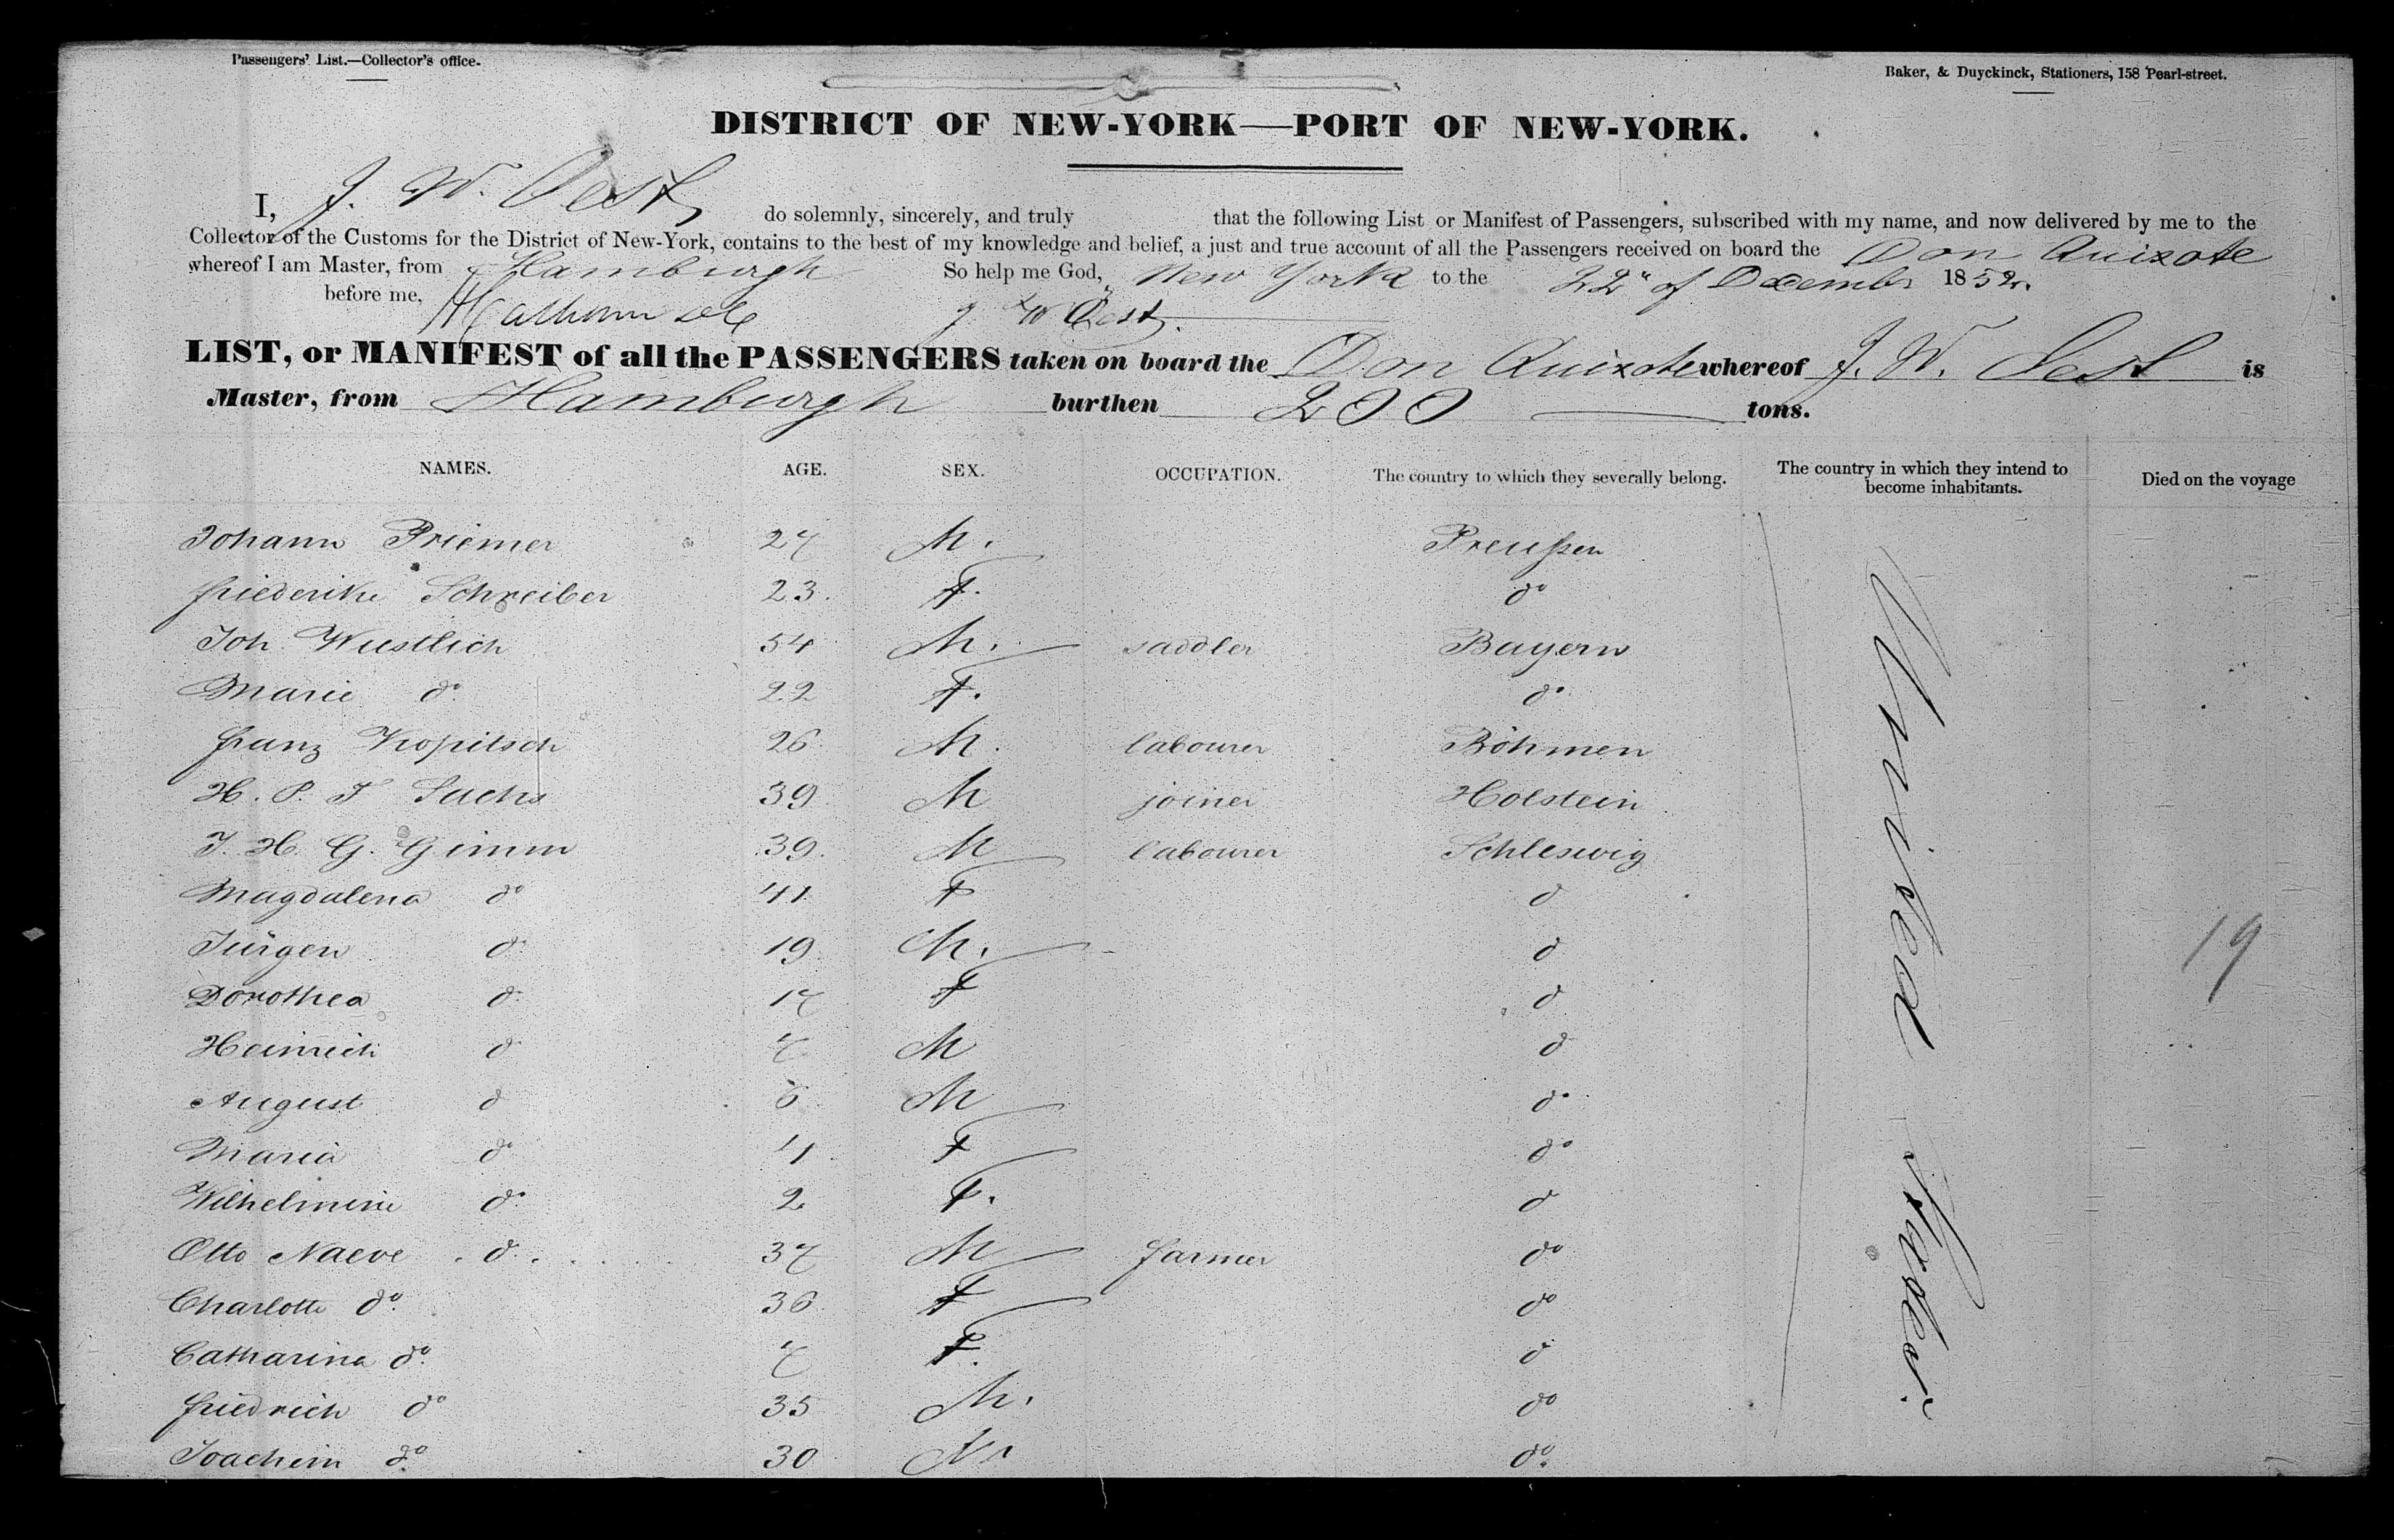 Passengers' List.—Collector's office.
Baker, & Duyckinck, Stationers, 158 Pearl-street.
DISTRICT OF NEW-YORK—PORT OF NEW-YORK.
I, J. W. Oest, do solemnly, sincerely, and truly that the following List or Manifest of Passengers, subscribed with my name, and now delivered by me to the
Collector of the Customs for the District of New-York, contains to the best of my knowledge and belief, a just and true account of all the Passengers received on board the Don Quixote
whereof I am Master, from Hamburgh So help me God, New York to the 22" of December 1852.
before me, J W Oest.
LIST, or MANIFEST of all the PASSENGERS taken on board the Don Quixote whereof J. W. Oest is
Master, from Hamburgh burthen 200 tons.
NAMES. AGE. SEX. OCCUPATION. The country to which they severally belong. The country in which they intend to become inhabitants. Died on the voyage
Johann Priemer 27 M. Preußen
Friederike Schreiber 23. F. do
Joh Wustlich 54 M. saddler Bayern
Marie do 22 F. do
Franz Kopitsch 26 M. labourer Böhmen
H. P. F Sachs 39 M joiner Holstein
J. H. G. Gimm 39. M labourer Schleswig
Magdalena do 41 F d
Jürgen d. 19 M. d
Dorothea d. 17 F d
Heinrich d 7 M d
August d 6 M d.
Maria do 4 F do
Wilhelmine d. 2 F. d
Otto Naeve . d. . 37 M farmer do
Charlotte do. 36 F do
Catharina do. 7 F. d
Friedrich do 35 M. do
Joachim do 30 M do.
United States.
19